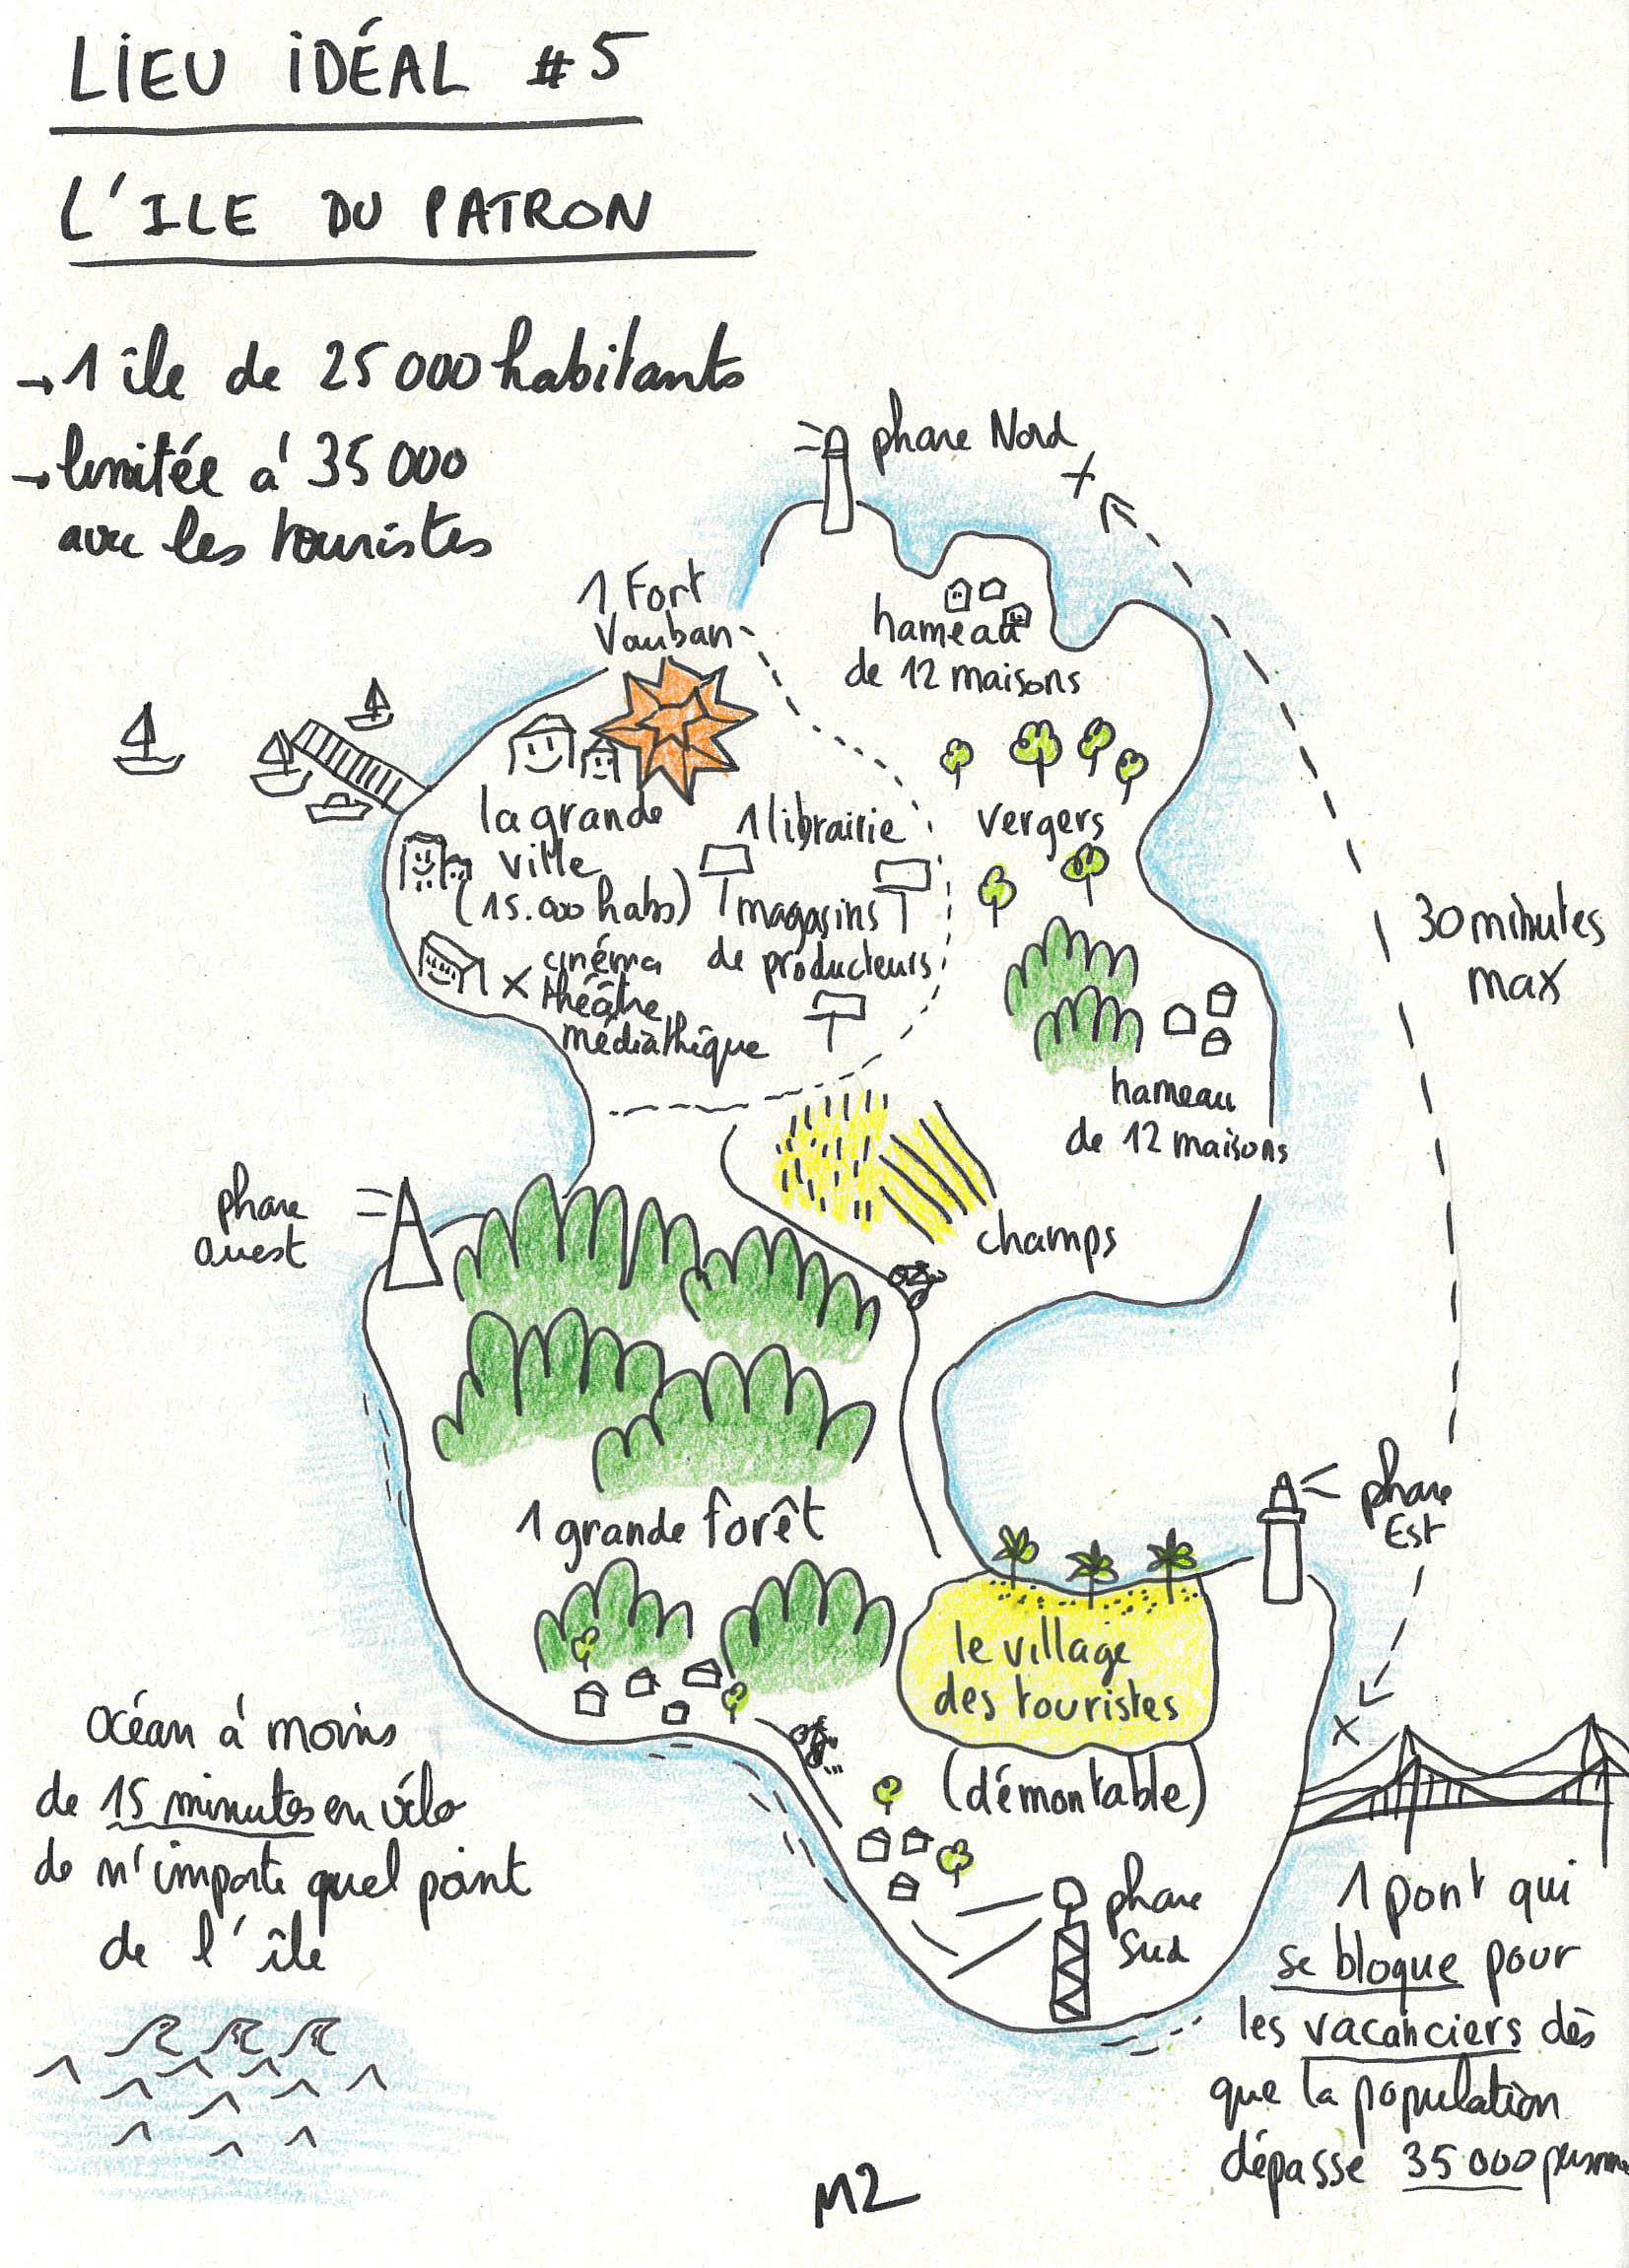 LIEU IDÉAL #5
L'ILE DU PATRON
→ 1 île de 25 000 habitants
→ limitée à 35 000
avec les touristes
phare Nord
1 Fort
Vauban
hameau
de 12 maisons
la grande
ville
(15.000 habs)
1 librairie
magasins
de producteurs
cinéma
théâtre
médiathèque
vergers
30 minutes
max
hameau
de 12 maisons
champs
phare
ouest
1 grande forêt
phare
Est
le village
des touristes
(démontable)
océan à moins
de 15 minutes en vélo
de n'importe quel point
de l'île
phare
Sud
1 pont qui
se bloque pour
les vacanciers dès
que la population
dépasse 35 000
M2